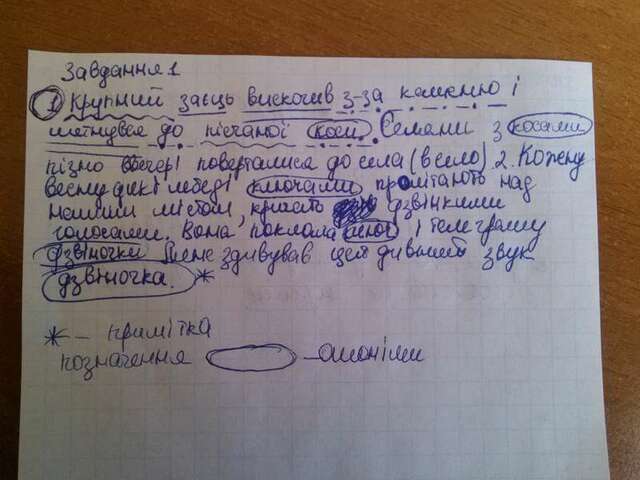 Завдання 1
1 Крупний заєць вискочив з-за каменю і
метнувся до піщаної коси. Селяни з косами
пізно ввечері поверталися до села (в село). 2. Кожену
весну дикі лебеді ключами пролітають над
нашим містом, кричать дзвінкими
голосами. Вона поклала ключ і телеграму
дзвіночки Мене здивував цей дивний звук
дзвіночка. *
* – примітка
позначення – омоніми